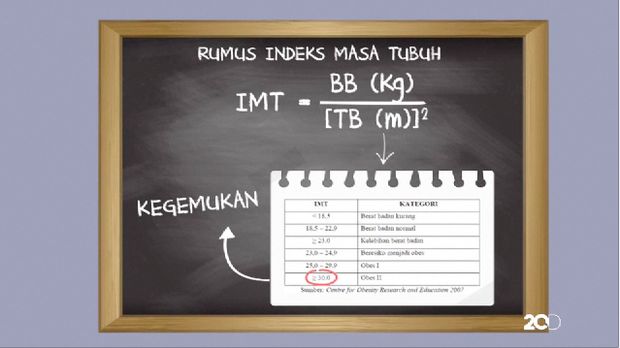 RUMUS INDEKS MASA TUBUH
IMT = BB (Kg)
[TB (m)]²
KEGEMUKAN
IMT KATEGORI
< 18,5 Berat badan kurang
18,5 – 22,9 Berat badan normal
≥ 23,0 Kelebihan berat badan
23,0 – 24,9 Beresiko menjadi obes
25,0 – 29,9 Obes I
≥ 30,0 Obes II
Sumber: Centre for Obesity Research and Education 2007